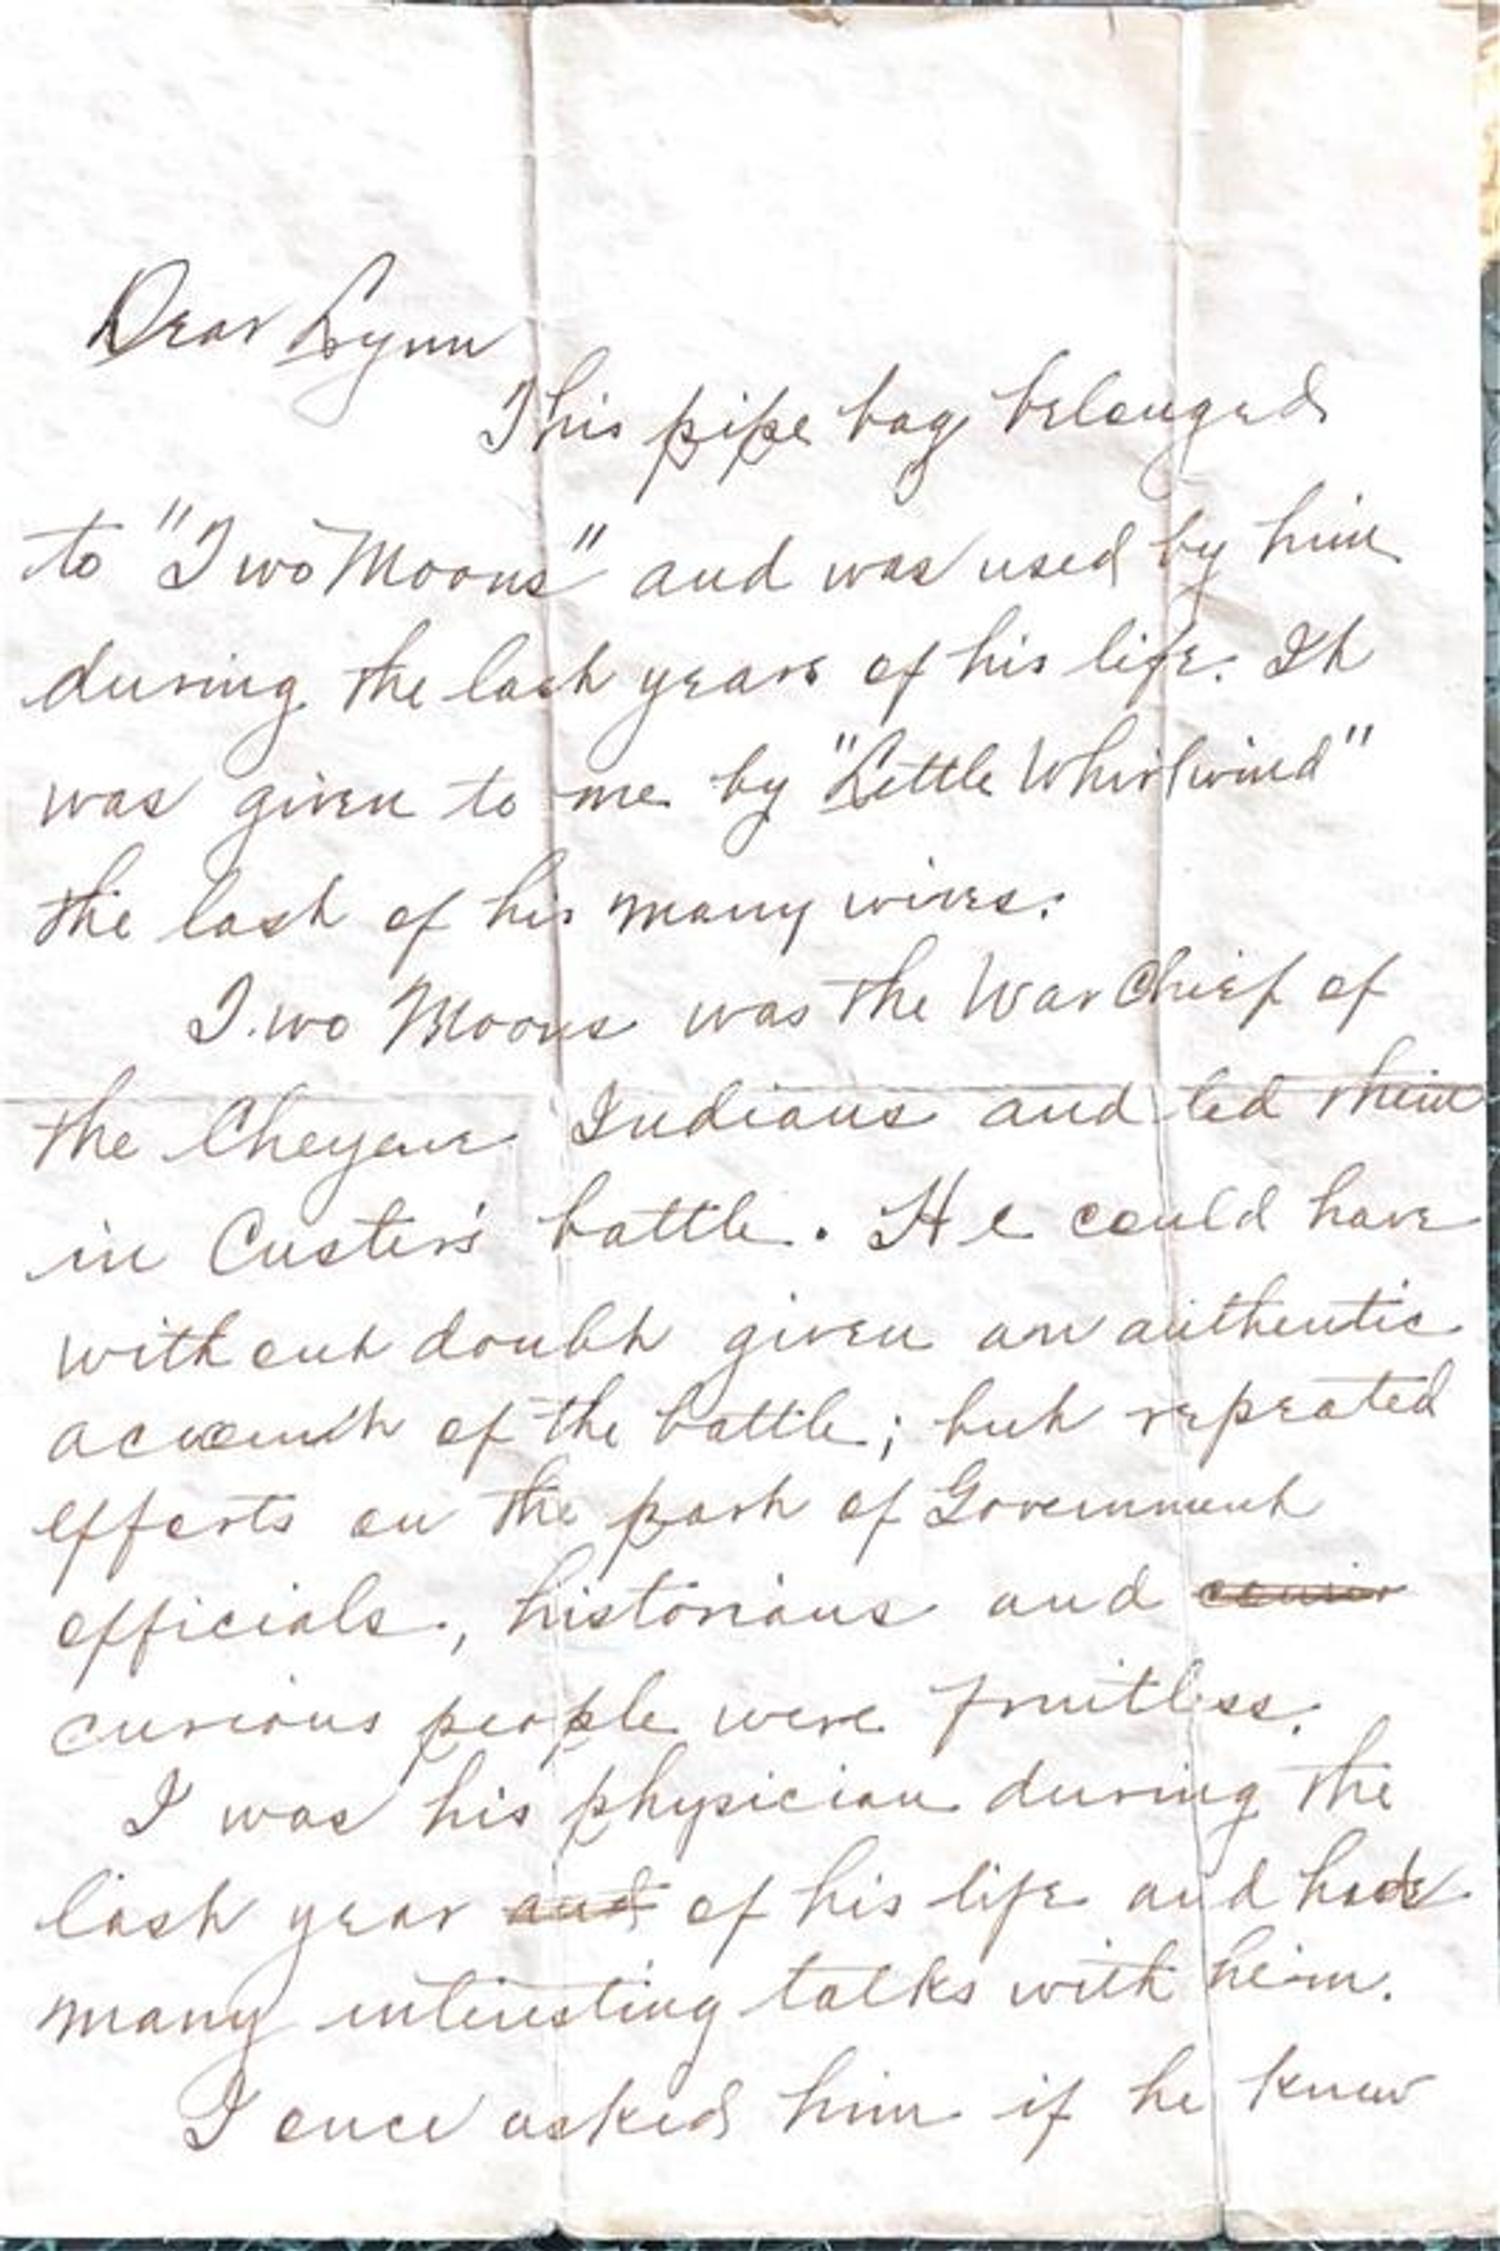 Dear Lynn
This pipe bag belonged
to "Two Moons" and was used by him
during the last years of his life. It
was given to me by "Little Whirlwind"
the last of his many wives.
Two Moons was the War Chief of
the Cheyene Indians and led them
in Custer's battle. He could have
without doubt given an authentic
account of the battle; but repeated
efforts on the part of Government
officials, historians and
curious people were fruitless.
I was his physician during the
last year and of his life and had
many interesting talks with him.
I once asked him if he knew